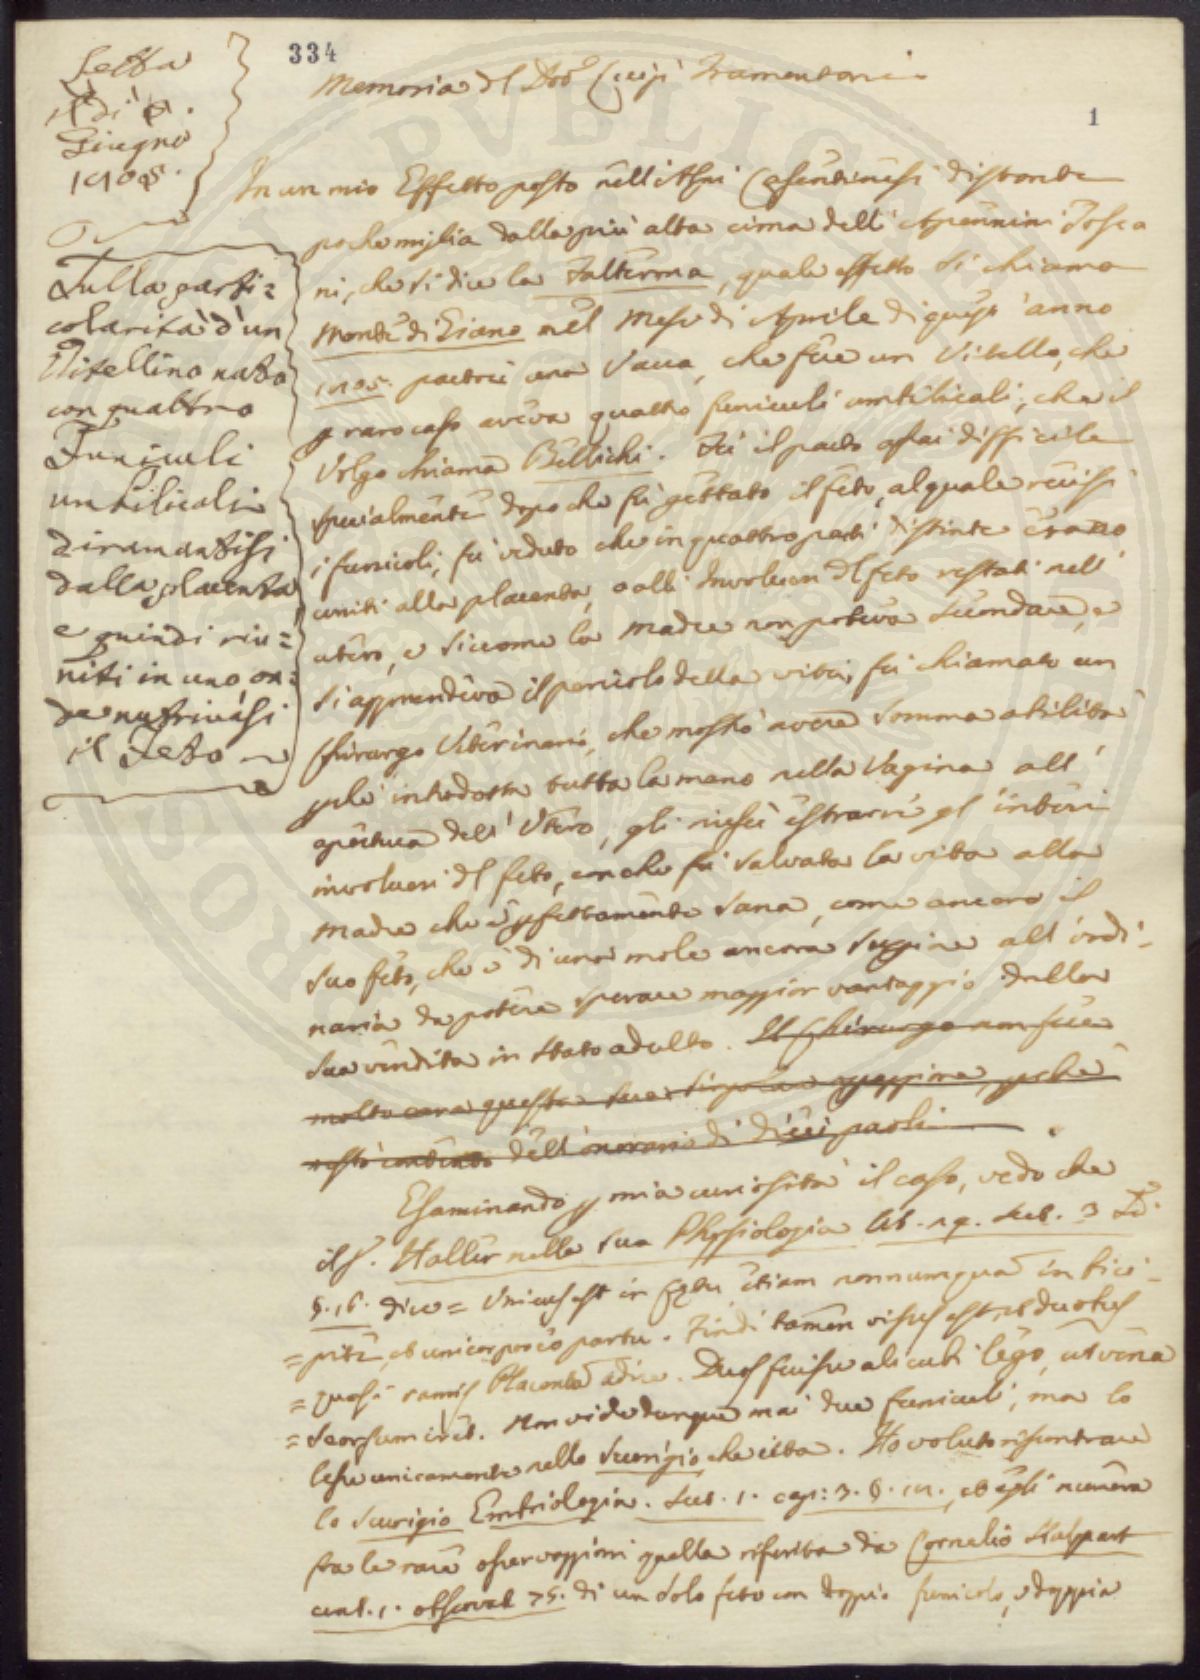 334
Memoria del Dor. Luigi Tramontani
1
Letta
il dì
Giugno
Sulla parti=
colarità d'un
Vitellino nato
con quattro
Funicoli
umbilicali
diramantisi
dalla placenta
e quindi riu=
niti in uno on=
de nutrivasi
il Feto
In un mio Effetto posto nell'Alpi Casentinesi distante
poche miglia dalla più alta cima dell'Apennini Tosca
ni, che si dice la Falterona, quale effetto si chiama
Monte di Giano nel Mese di Aprile di quest'anno
partorì una Vacca, che fece un Vitello, che
p raro caso aveva quattro funiculi umbilicali, che il
Volgo chiama Bellichi. Fù il parto assai difficile
specialmente dopo che fù gettato il feto, al quale recisi
i funicoli, fù veduto che in quattro parti distinte erano
uniti alla placenta, o alli Involucri del feto restati nell'
utero, e siccome la Madre non poteva secondare, e
si apprendeva il pericolo della vita, fù chiamato un
Chirurgo Veterinario, che mostrò avere somma abilità
pchè introdotta tutta la mano nella Vagina all'
apertura dell'Utero, gli riuscì estrarre gl'interi
involucri del feto, onche fù salvata la vita alla
Madre che è pfettamente sana, come ancora il
suo feto, che è di una mole ancora suppiore all'ordi-
naria da potere sperare maggior vantaggio dalla
sua vendita in stato adulto. Il Chirurgo non fece
molto cara questa sua operazione, pchè
restò contento dell'onorario di dieci paoli
Esaminando p mia curiosità il caso, vedo che
il S. Haller nella sua Physiologia Lib. Sect. 3
§. 16. dice = Unicus est in fetu etiam nonnumquam in bici-
= pite, et unicorporeo partu. Findi tamen visus est et duobus
= quasi ramis Placentam adire. Duos fuisse alicubi lego, ut vena
= seorsum iret. Non vide dunque mai due funiculi, ma lo
lesse unicamente nello Scurigio, che cita. Ho voluto riscontrare
lo Scurigio Embriologia. Sect. 1. cap: 3. §. , ed egli numera
fra le rare osservazioni quella riferita da Cornelio Stalpart
cent. 1. observat 75. di un solo feto con doppio funicolo, e doppia